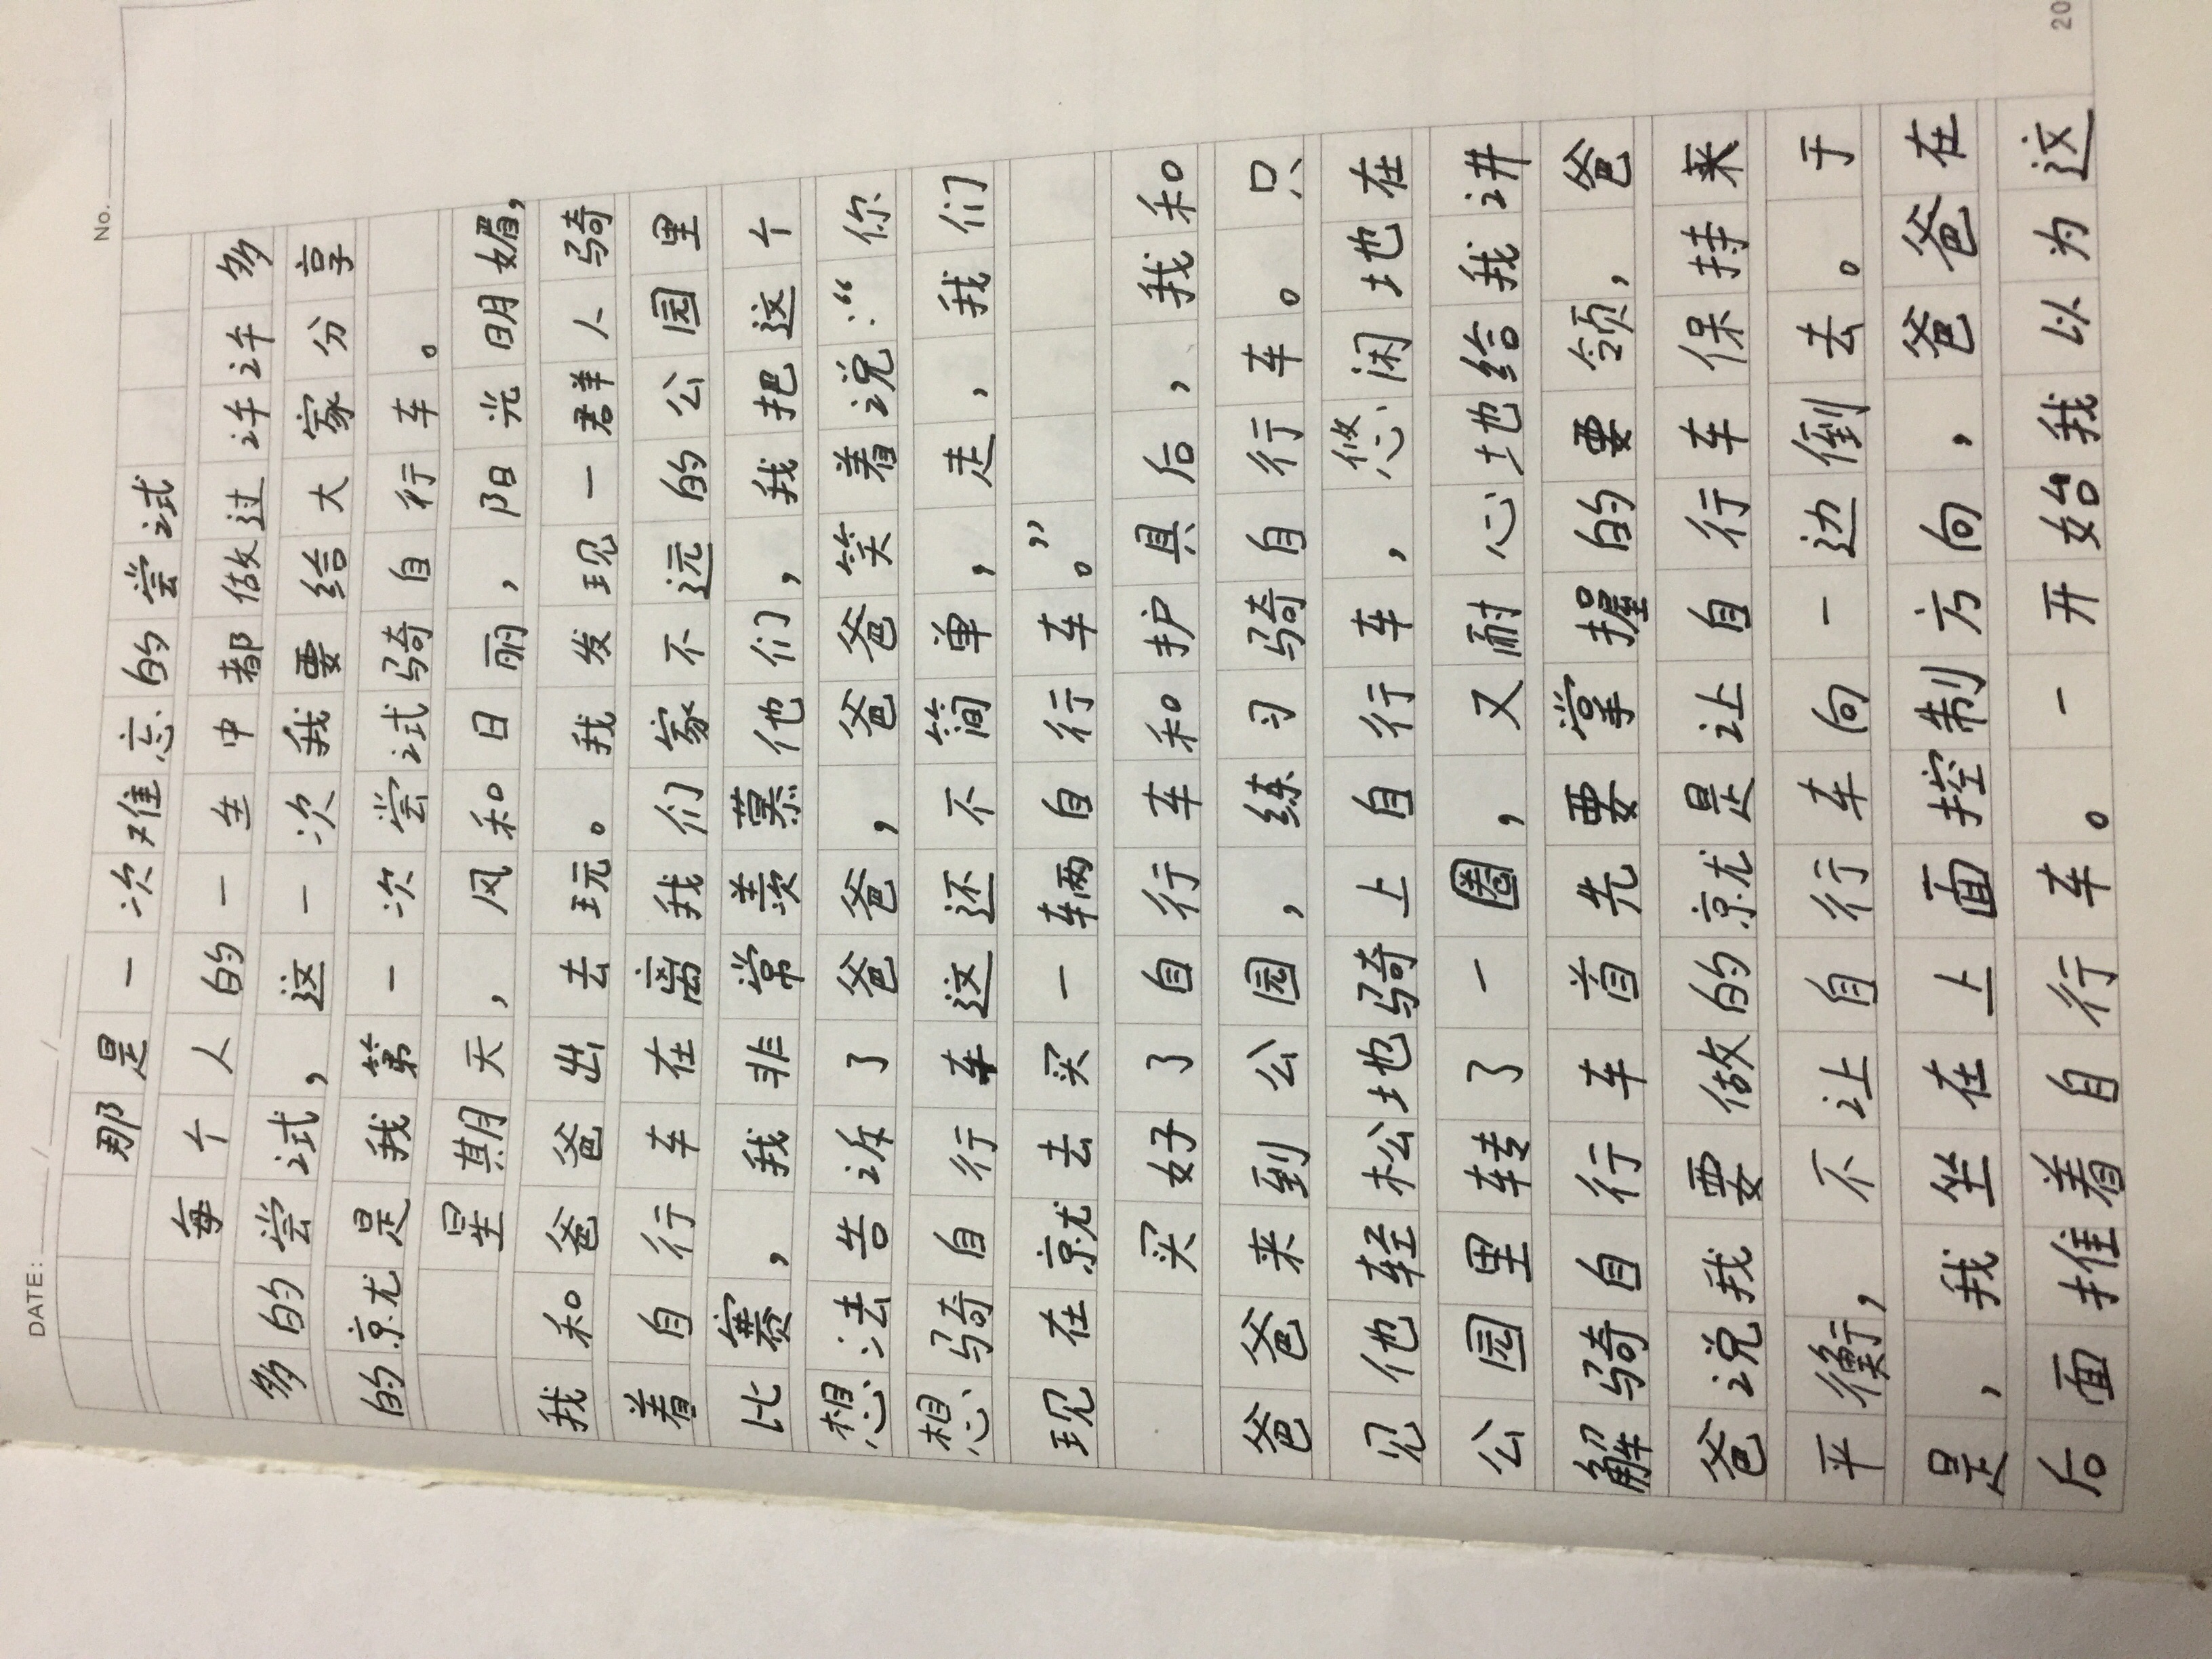 DATE: / /
No.
那是一次难忘的尝试
每个人的一生中都做过许许多
多的尝试，这一次我要给大家分享
的就是我第一次尝试骑自行车。
星期天，风和日丽，阳光明媚，
我和爸爸出去玩。我发现一群人骑
着自行车在离我们家不远的公园里
比赛，我非常羡慕他们，我把这个
想法告诉了爸爸，爸爸笑着说：“你
想骑自行车这还不简单，走，我们
现在就去买一辆自行车。”
买好了自行车和护具后，我和
爸爸来到公园，练习骑自行车。只
见他轻松地骑上自行车，悠闲地在
公园里转了一圈，又耐心地给我讲
解骑自行车首先要掌握的要领，爸
爸说我要做的就是让自行车保持
平衡，不让自行车向一边倒去。于
是，我坐在上面控制方向，爸爸在
后面推着自行车。一开始我以为这
20